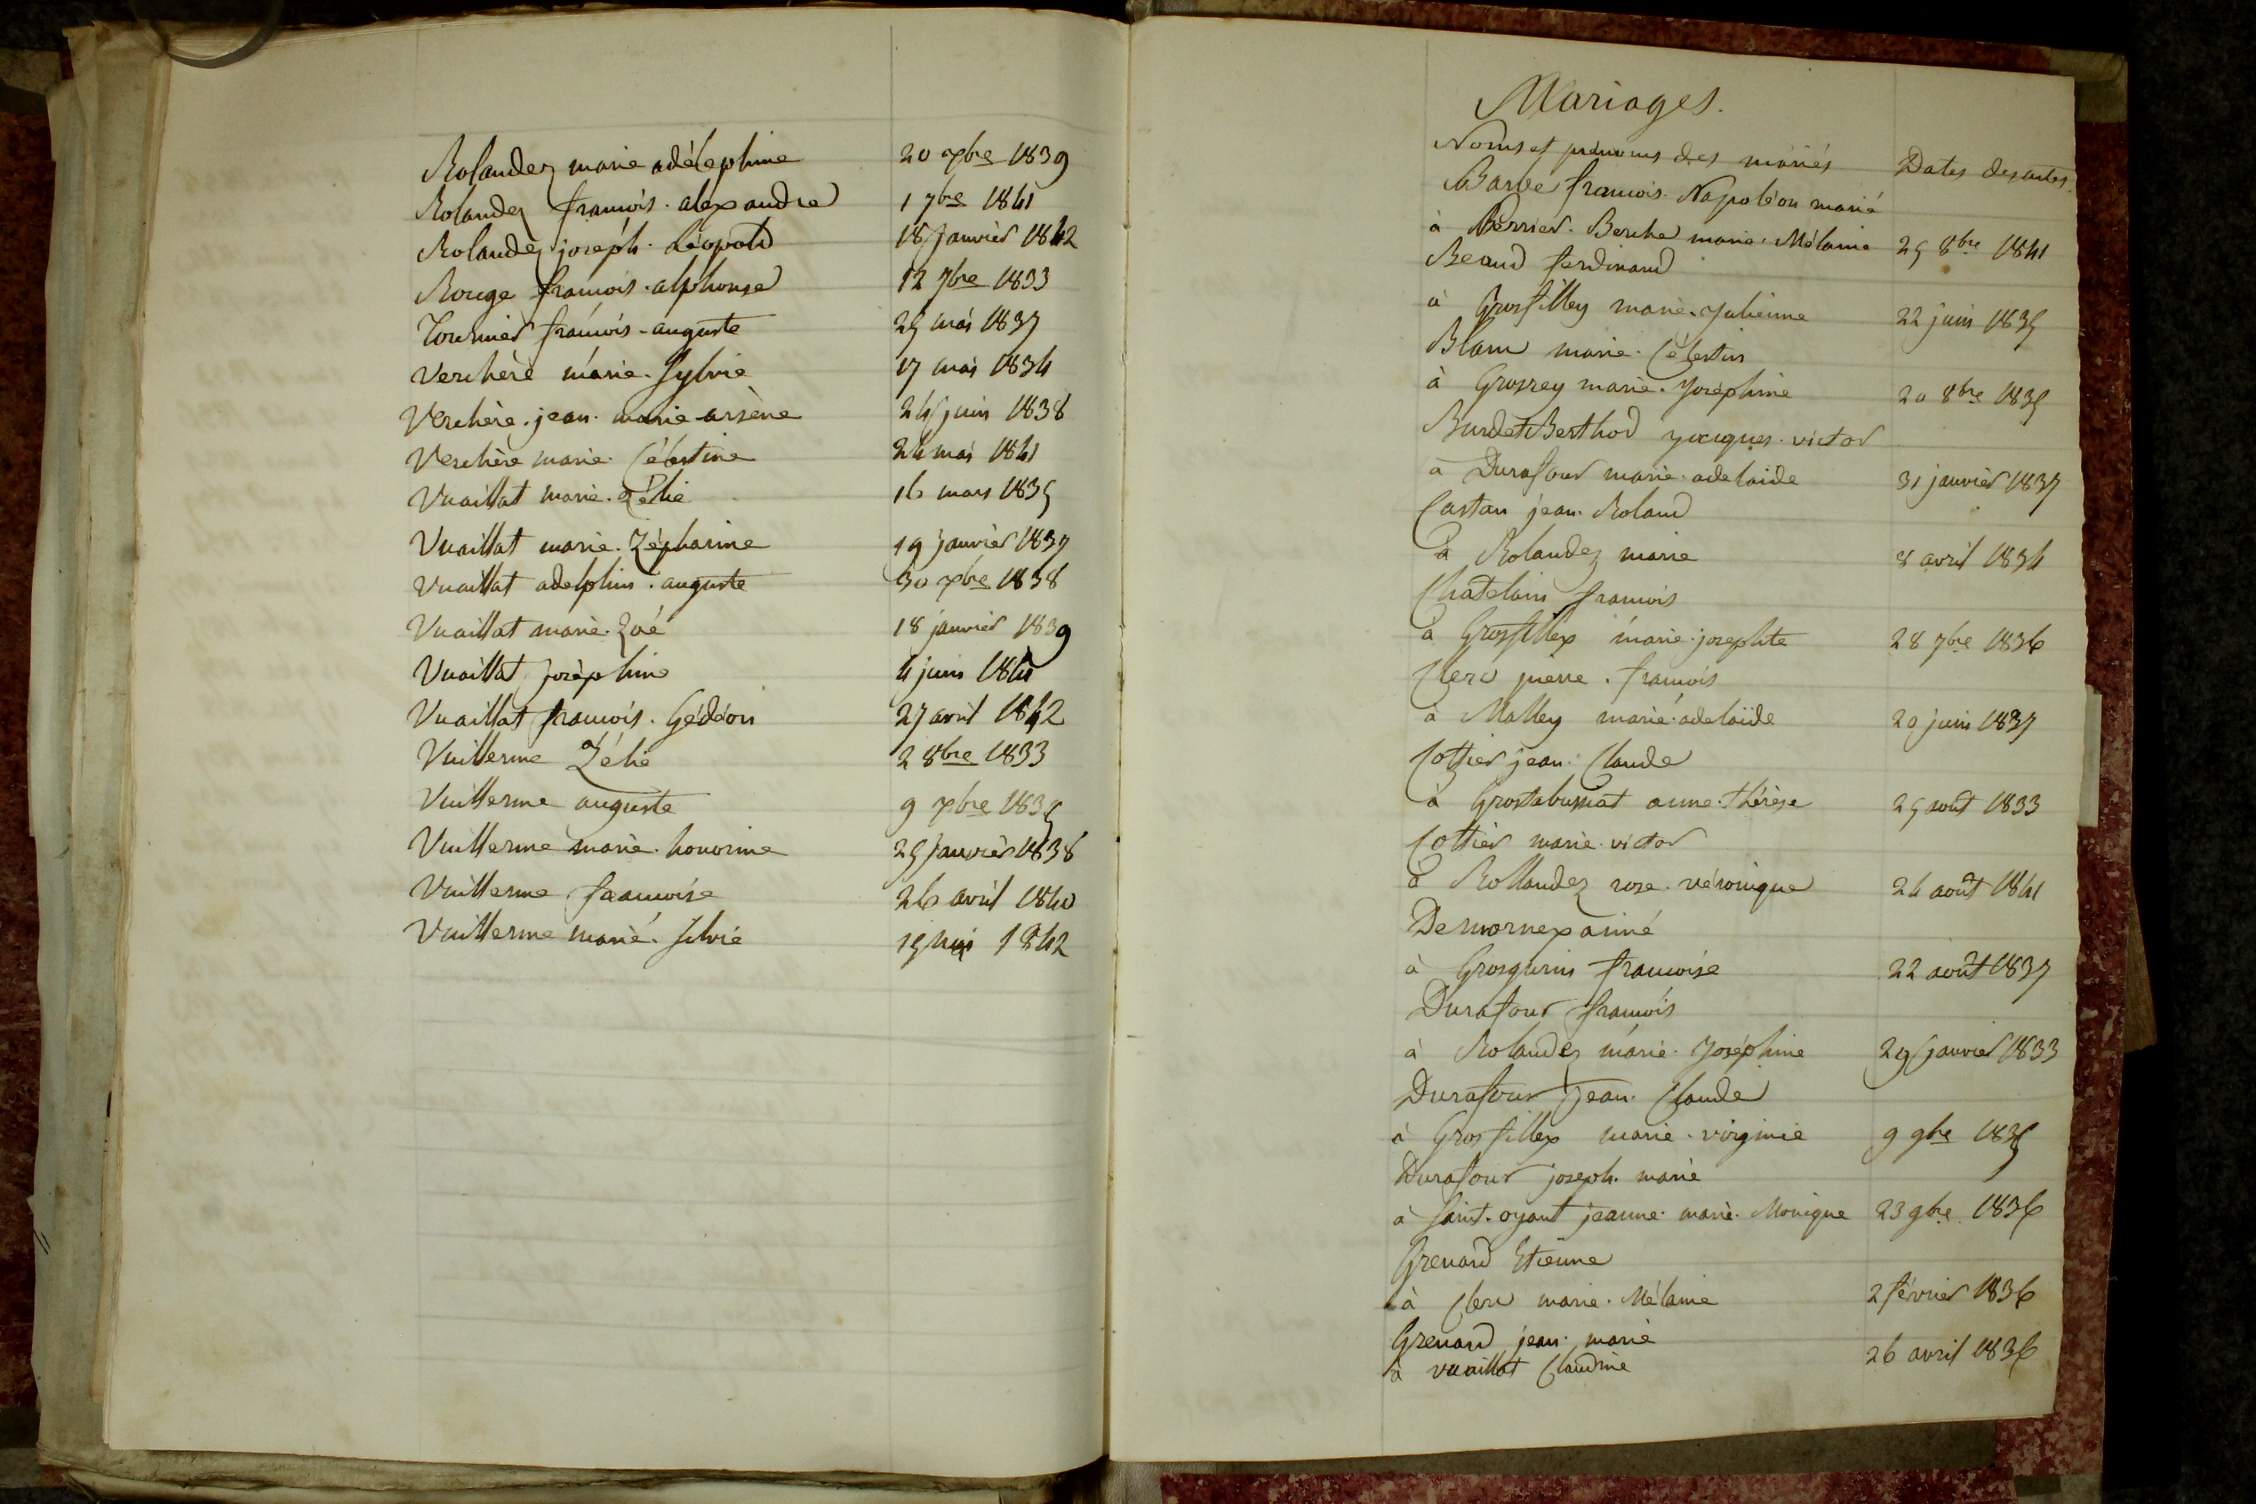 Rolandez marie adélephine 20 xbre 1839
Rolandez françois. alexandre 1 7bre 1841
Rolandez joseph. Léopold 18 janvier 1842
Rouge françois. alphonse 12 7bre 1833
Tournier françois-auguste 25 mai 1837
Verchère marie. Sylvie 17 mai 1834
Verchère. jean. marie arsène 24 juin 1838
Verchère marie. Célestine 24 mai 1841
Vuaillat marie. Zélie 16 mars 1835
Vuaillat marie. Zépharine 19 janvier 1837
Vuaillat adelphin. auguste 30 xbre 1838
Vuaillat marie. Zoé 18 janvier 1839
Vuaillat joséphine 4 juin 1841
Vuaillat françois. Gédéon 27 avril 1842
Vuillerme Zélie 2 8bre 1833
Vuillerme auguste 9 xbre 1835
Vuillerme marie. honorine 25 janvier 1838
Vuillerme françoise 26 avril 1840
Vuillerme marie. Silvie 15 mai 1842
Mariages.
Noms et prénoms des mariés Dates des actes.
Barbe françois. Napoléon marié
à Perrier. Berche marie. Mélanie 25 8bre 1841
Beaud ferdinand
à Grosfilley marie. Julienne 22 juin 1835
Blanc marie. Célestin
à Grosrey marie. Joséphine 20 8bre 1835
Burdet Berthod jacques. victor
à Durafour marie. adelaide 31 janvier 1837
Castan jean. Roland
à Rolandez marie 8 avril 1834
Chatelain françois
à Grosfillex marie. josephte 28 7bre 1836
Clerc pierre. françois
à Malley marie. adelaïde 20 juin 1837
Cottier jean. Claude
à Grostabussiat anne. thérèse 25 août 1833
Cottier marie. victor
à Rollandez rose. véronique 24 août 1841
Demornex aimé
à Grosgurin françoise 22 août 1837
Durafour françois
à Rolandez marie. Joséphine 29 janvier 1833
Durafour Jean. Claude
à Grosfillex marie. virginie 9 9bre 1835
Durafour joseph. marie
à Saint. oyant jeanne. marie. Monique 23 9bre 1836
Grenard Etienne
à Clerc marie. Mélanie 2 février 1836
Grenard jean. marie
à vuaillat Claudine 26 avril 1836